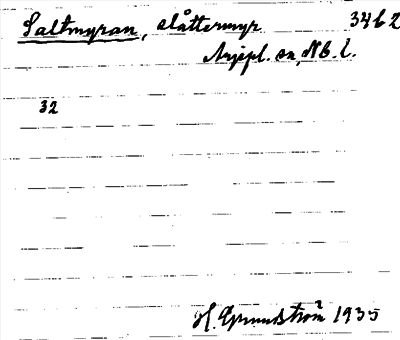 Saltmyran, slåttermyr 34 b 2
Arjepl. sn, Nb. l.
32
H. Grundström 1935